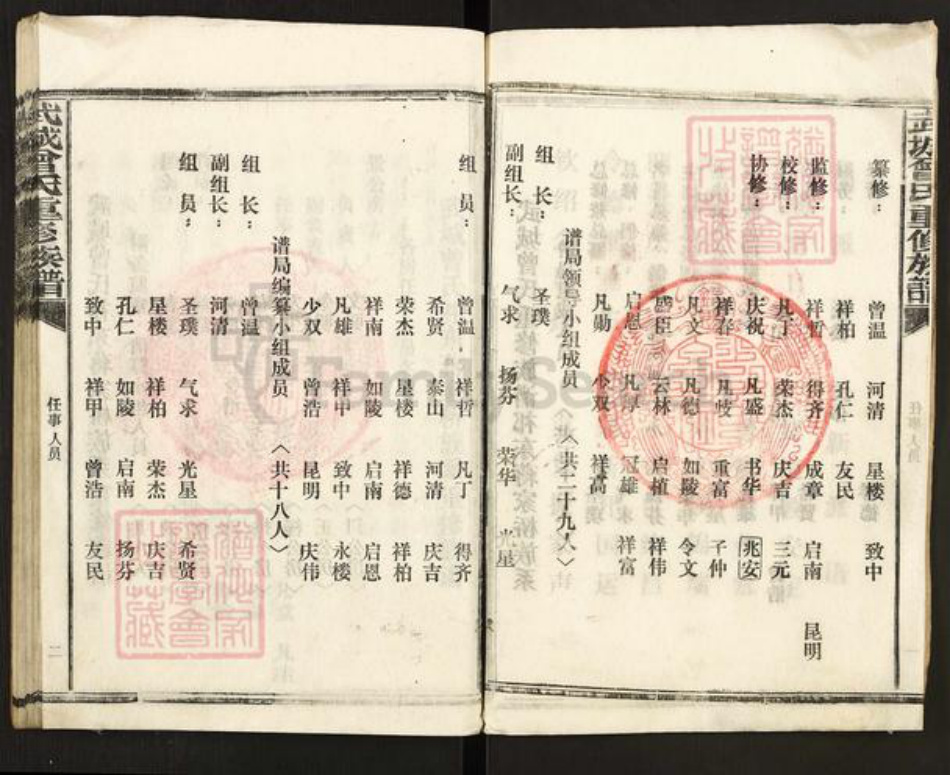 武城曾氏重修族譜
任事人员
一
纂修：
曾温 河清 星楼 致中
祥柏 孔仁 友民
监修：祥哲 得齐 成章 启南 昆明
校修：凡丁 荣杰 庆吉 三元
协修：庆祝 凡盛 书华 兆安
祥春 凡岐 重富 子仲
凡文 凡德 如陵 令文
盛臣 云林 启植 祥伟
启恩 凡厚 冠雄 祥富
凡勋 少双 祥高
谱局领导小组成员 〈共二十九人〉
组长：圣璞
副组长：气求 扬芬 荣华 光星
组员：曾温 祥哲 凡丁 得齐
希贤 泰山 河清 庆吉
荣杰 星楼 祥德 祥柏
祥南 如陵 启南 启恩
凡雄 祥中 致中 永楼
少双 曾浩 昆明 庆伟
谱局编纂小组成员 〈共十八人〉
组长：曾温
副组长：河清
组员：圣璞 气求 光星 希贤
星楼 祥柏 荣杰 庆吉
孔仁 如陵 启南 扬芬
致中 祥甲 曾浩 友民
武城曾氏重修族譜
任事人员
二
FamilySearch